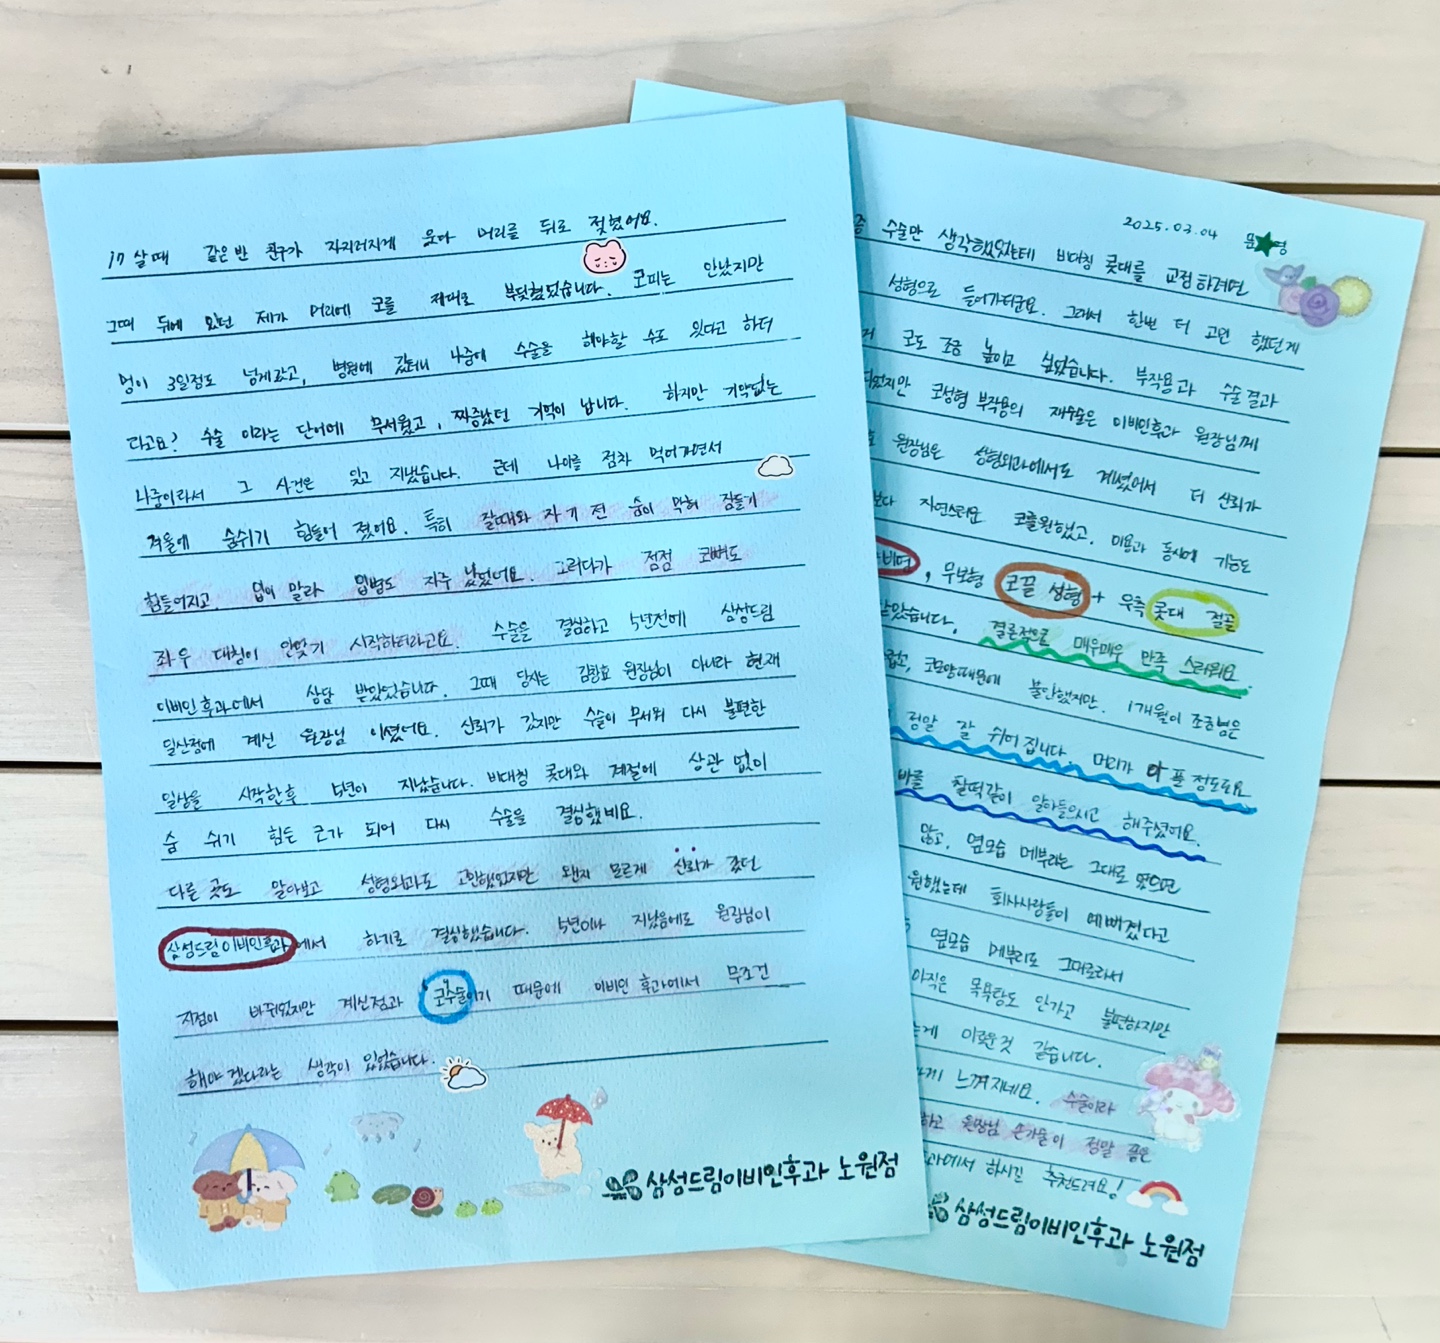 17살때 같은반 친구가 자지러지게 웃다 머리를 뒤로 젖혔어요.
그때 뒤에 있던 제가 머리에 코를 제대로 부딪혔었습니다. 코피는 안났지만
멍이 3일정도 넘게갔고, 병원에 갔더니 나중에 수술을 해야할 수도 있다고 하더
라고요? 수술 이라는 단어에 무서웠고, 짜증났던 기억이 납니다. 하지만 기약없는
나중이라서 그 사건은 잊고 지냈습니다. 근데 나이를 점차 먹어가면서
겨울에 숨쉬기 힘들어 졌어요. 특히 잘때와 자기 전 숨이 막혀 잠들기
힘들어지고, 입이 말라 입병도 자주 났었어요. 그러다가 점점 코뼈도
좌우 대칭이 안맞기 시작하더라고요. 수술을 결심하고 5년전에 삼성드림
이비인후과에서 상담 받았었습니다. 그때 당시는 김창효 원장님이 아니라 현재
일산점에 계신 원장님 이셨어요. 신뢰가 갔지만 수술이 무서워 다시 불편한
일상을 시작한후 5년이 지났습니다. 비대칭 콧대와 계절에 상관 없이
숨 쉬기 힘든 코가 되어 다시 수술을 결심했네요.
다른 곳도 알아보고 성형외과도 고민했었지만 왠지 모르게 신뢰가 갔던
삼성드림이비인후과에서 하기로 결심했습니다. 5년이나 지났음에도 원장님이
지점이 바뀌었지만 계신점과 '코수술'이기 때문에 이비인후과에서 무조건
해야 겠다라는 생각이 있었습니다.
삼성드림이비인후과 노원점
2025.03.04 문★영
수술만 생각했었는데 비대칭 콧대를 교정하려면
성형으로 들어가더군요. 그래서 한번 더 고민 했던게
코도 조금 높이고 싶었습니다. 부작용과 수술결과
코성형 부작용의 재수술은 이비인후과 원장님께
원장님은 성형외과에서도 계셨어서 더 신뢰가
자연스러운 코를원했고, 미용과 동시에 기능도
, 무보형 코끝 성형 + 우측 콧대 절골
받았습니다. 결론적으로 매우매우 만족 스러워요.
코모양때문에 불안했지만, 1개월이 조금넘은
정말 잘 쉬어집니다. 머리가 아플 정도로요
바를 찰떡같이 알아들으시고 해주셨어요.
않고, 옆모습 메부리는 그대로 였으면
원했는데 회사사람들이 예뻐졌다고
옆모습 메부리도 그대로라서
아직은 목욕탕도 안가고 불편하지만
이로운것 같습니다.
느껴지네요. 수술이라
하고 원장님 손기술이 정말 좋은
과에서 하시길 추천드려요!
삼성드림이비인후과 노원점